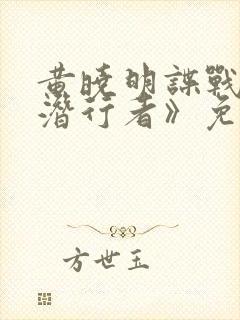 黄晓明谍战
潜行者》免
方世玉